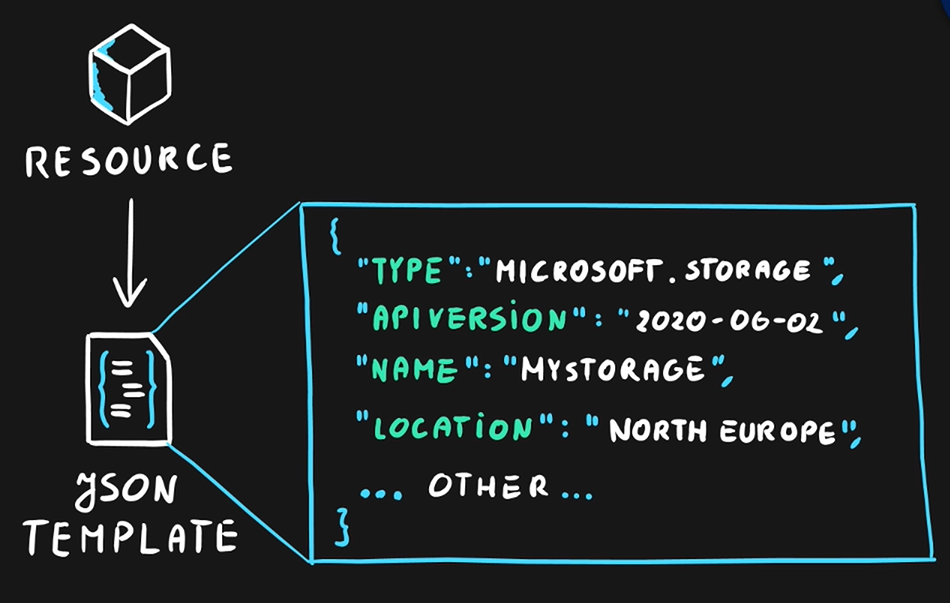 RESOURCE
JSON
TEMPLATE
{
"TYPE":"MICROSOFT.STORAGE",
"APIVERSION": "2020-06-02",
"NAME": "MYSTORAGE",
"LOCATION": "NORTH EUROPE",
... OTHER ...
}